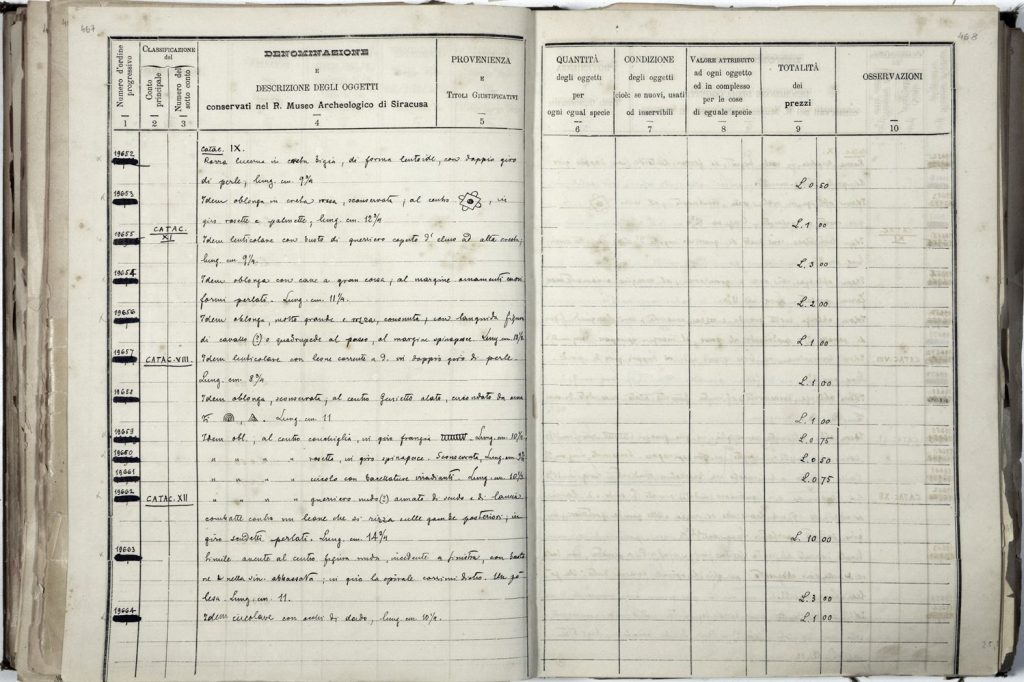 467
Numero d'ordine progressivo
CLASSIFICAZIONE del
Conto principale
Numero del sotto conto
DENOMINAZIONE
E
DESCRIZIONE DEGLI OGGETTI
conservati nel R. Museo Archeologico di Siracusa
PROVENIENZA
E
TITOLI GIUSTIFICATIVI
1 2 3 4 5
19652 catac. IX.
Rozza lucerna in creta bigia, di forma lenticolare, con doppio giro
di perle, lung. cm. 9 3/4
19653 Idem oblonga in creta rossa, sconservata; al centro , in
giro rosette e palmette, lung. cm. 12 3/4
CATAC. XI
19655 Idem lenticolare con busto di guerriero coperto d' elmo ad alta cresta;
lung. cm. 9 1/4
19654 Idem oblonga con cane a gran corsa, al margine ornamenti
formi perlati. Lung. cm. 11 1/4
19656 Idem oblonga, molto grande e rozza, consunta, con languida figura
di cavallo (?) o quadrupede al passo, al margine spinapesce. Lung. cm.
19657 CATAC. VIII. Idem lenticolare con leone corrente a D. in doppio giro di perle.
Lung. cm. 8 3/4
19658 Idem oblonga, sconservata, al centro alato, circondato da
Lung. cm. 11
19659 Idem obl., al centro conchiglia, in giro frangia . Lung. cm. 10 1/2
19660 " " " " rosetta, in giro spinapesce. Sconservata, Lung. cm.
19661 " " " " circolo con baccellature irradianti. Lung. cm. 10
19662 CATAC. XII " " " " guerriero nudo (?) armato di scudo e di lancia
combatte contro un leone che si rizza sulle gambe posteriori; in
giro perlati. Lung. cm. 14 3/4
19663 Simile avente al centro figura nuda, incidente a sinistra, con basto
ne e nella sin. abbassata; in giro la spirale
Lung. cm. 11.
19664 Idem circolare con occhi di dado, lung. cm. 10 1/2.
468
QUANTITÀ
degli oggetti
per
ogni egual specie
CONDIZIONE
degli oggetti
cioè: se nuovi, usati
od inservibili
VALORE ATTRIBUITO
ad ogni oggetto
ed in complesso
per le cose
di eguale specie
TOTALITÀ
dei
prezzi
OSSERVAZIONI
6 7 8 9 10
L. 0 50
L. 1 00
L. 3 00
L. 2 00
L. 1 00
L. 1 00
L. 1 00
L. 0 75
L. 0 50
L. 0 75
L. 10 00
L. 3 00
L. 1 00